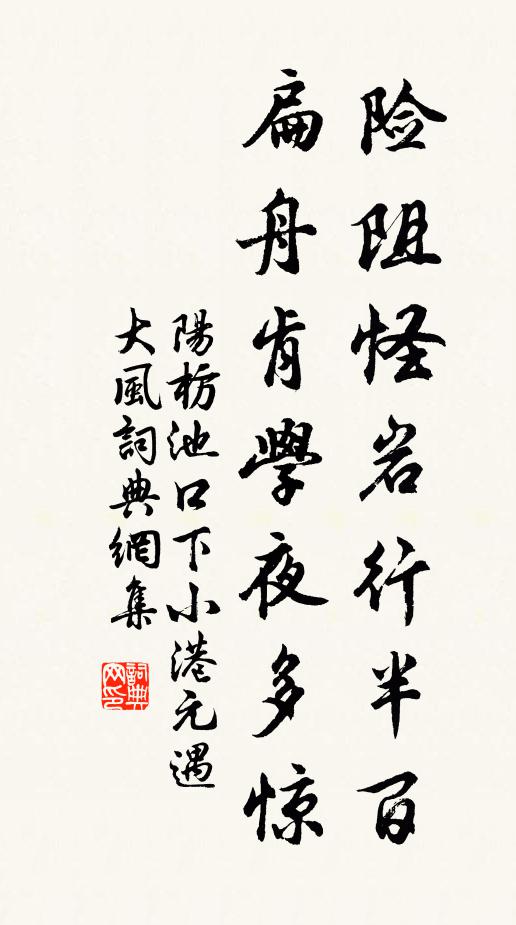 险阻怪岩行半百
扁舟肯學夜多惊
陽枋池口下小港元遇
大風詞典網集
詞典網印